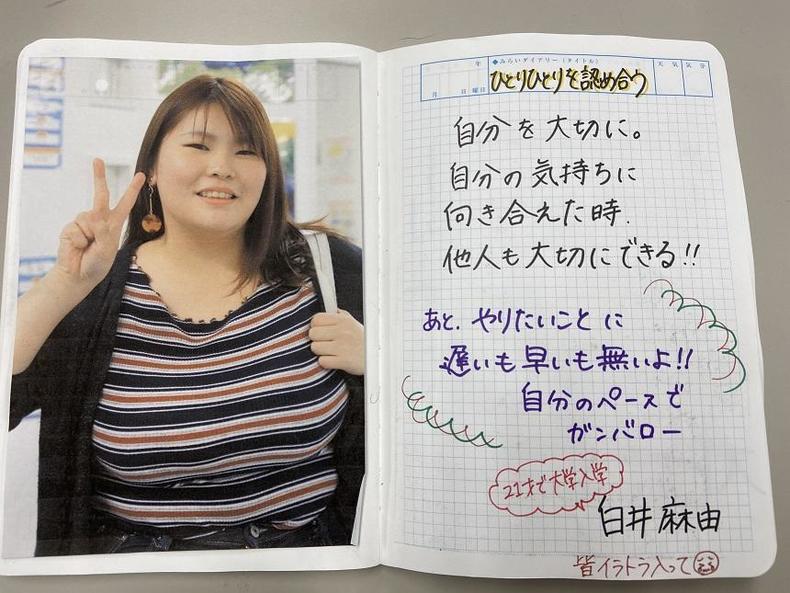 年
月 日 曜日
◆みらいダイアリー(タイトル)
天気
気分
ひとりひとりを認め合う
自分を大切に。
自分の気持ちに
向き合えた時.
他人も大切にできる!!
あと、やりたいことに
遅いも早いも無いよ!!
自分のペースで
ガンバロー
21才で大学入学
白井麻由
皆イラトラ入って